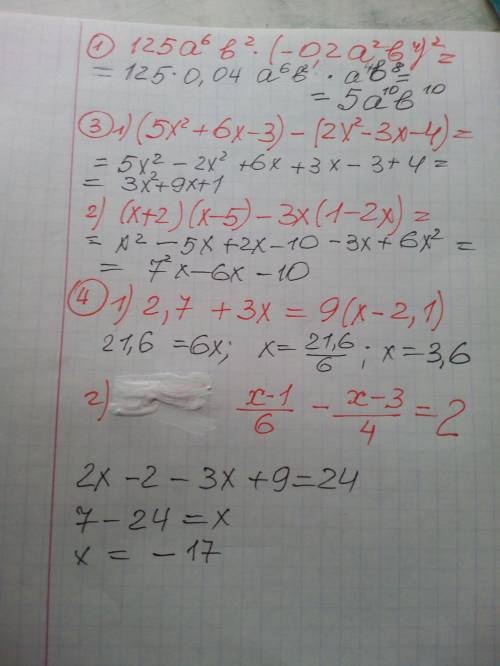 ① 125a⁶b²·(-0,2a²b⁴)²=
= 125·0,04 a⁶b²·a⁴b⁸=
= 5a¹⁰b¹⁰
③ 1) (5x²+6x-3)-(2x²-3x-4)=
= 5x²-2x²+6x+3x-3+4=
= 3x²+9x+1
2) (x+2)(x-5)-3x(1-2x)=
= x²-5x+2x-10-3x+6x²=
= 7²x-6x-10
④ 1) 2,7+3x=9(x-2,1)
21,6=6x; x=21,6/6; x=3,6
2) x-1/6 - x-3/4 = 2
2x-2-3x+9=24
7-24=x
x = -17